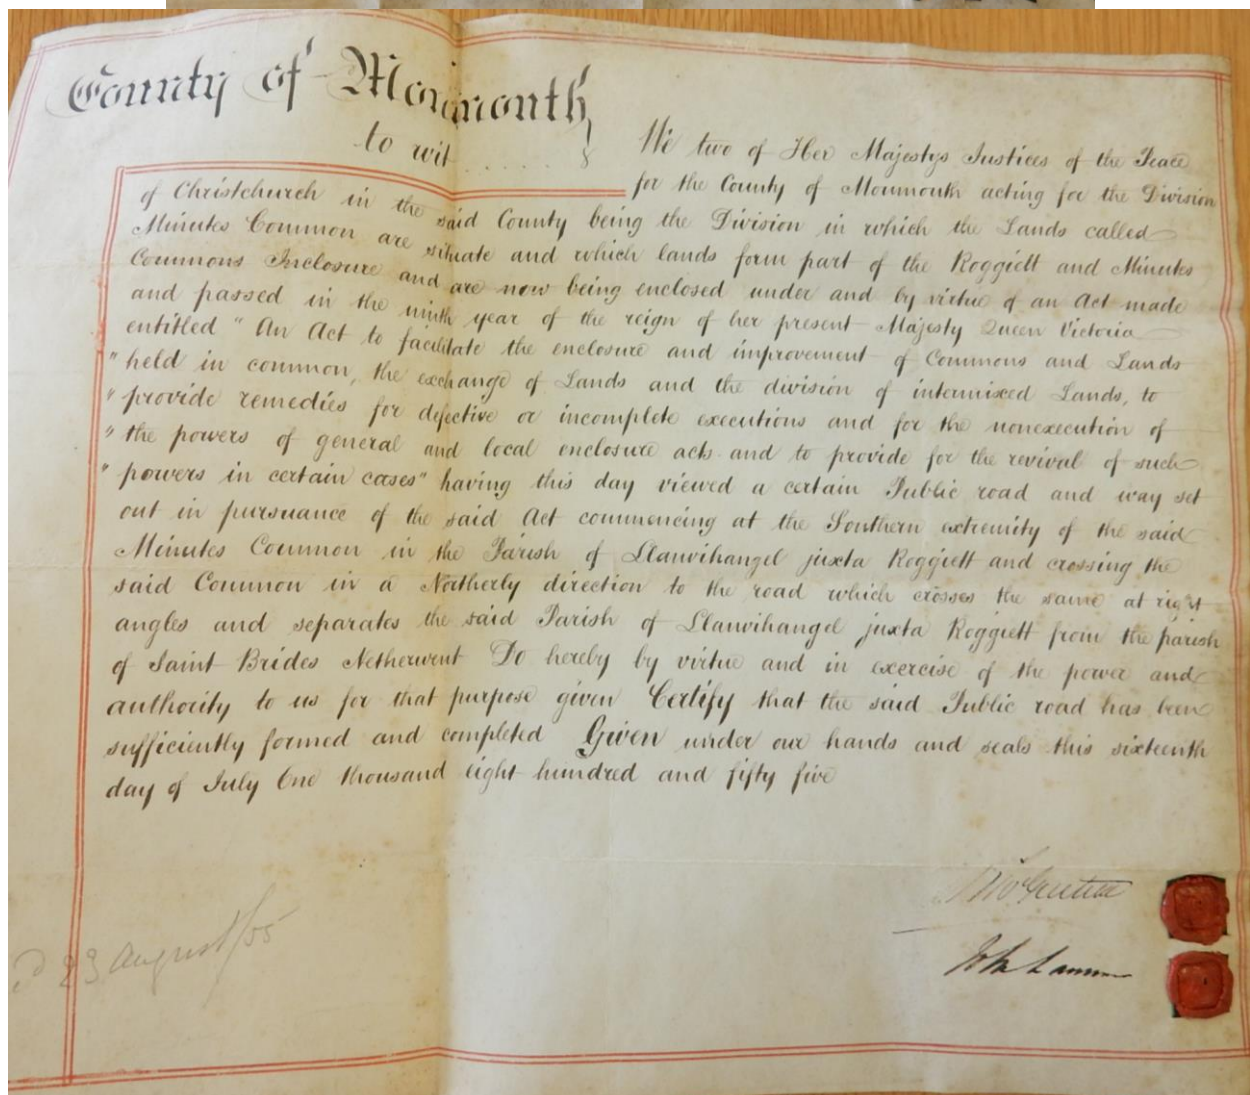 County of Monmouth
to wit
We two of Her Majestys Justices of the Peace
for the County of Monmouth acting for the Division
of Christchurch in the said County being the Division in which the Lands called
Minutes Common are situate and which lands form part of the Roggiett and Minutes
Commons Inclosure and are now being enclosed under and by virtue of an Act made
and passed in the ninth year of the reign of her present Majesty Queen Victoria
entitled "An Act to facilitate the enclosure and improvement of Commons and Lands
"held in common, the exchange of Lands and the division of intermixed Lands, to
"provide remedies for defective or incomplete executions and for the nonexecution of
"the powers of general and local enclosure acts and to provide for the revival of such
"powers in certain cases" having this day viewed a certain Public road and way set
out in pursuance of the said Act commencing at the Southern extremity of the said
Minutes Common in the Parish of Llanvihangel juxta Roggiett and crossing the
said Common in a Northerly direction to the road which crosses the same at right
angles and separates the said Parish of Llanvihangel juxta Roggiett from the parish
of Saint Brides Netherwent Do hereby by virtue and in exercise of the power and
authority to us for that purpose given Certify that the said Public road has been
sufficiently formed and completed Given under our hands and seals this sixteenth
day of July One thousand eight hundred and fifty five
23 August/55